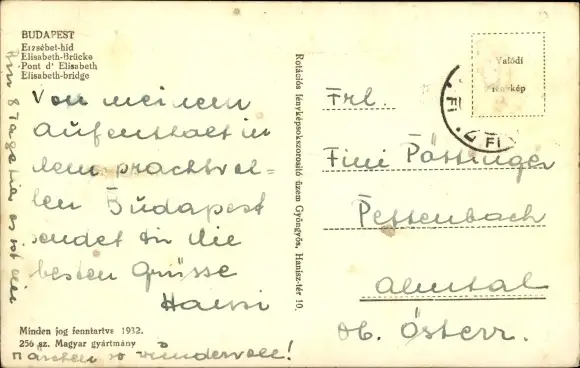 BUDAPEST
Erzsébet-híd
Elisabeth-Brücke
Pont d' Elisabeth
Elisabeth-bridge
Von meinem
Aufenthalt in
dem prachtvol=
len Budapest
sendet dir die
besten Grüsse
Hansi
Bin 8 Tage hier es ist ein
Märchen so wundervoll!
Minden jog fenntartva 1932.
256 sz. Magyar gyártmány
Rotációs fényképsokszorosító üzem Gyöngyös, Hanisz-tér 10.
Valódi
fénykép
FI
FI
Frl.
Fini Pöttinger
Pettenbach
Almtal
Ob. Österr.